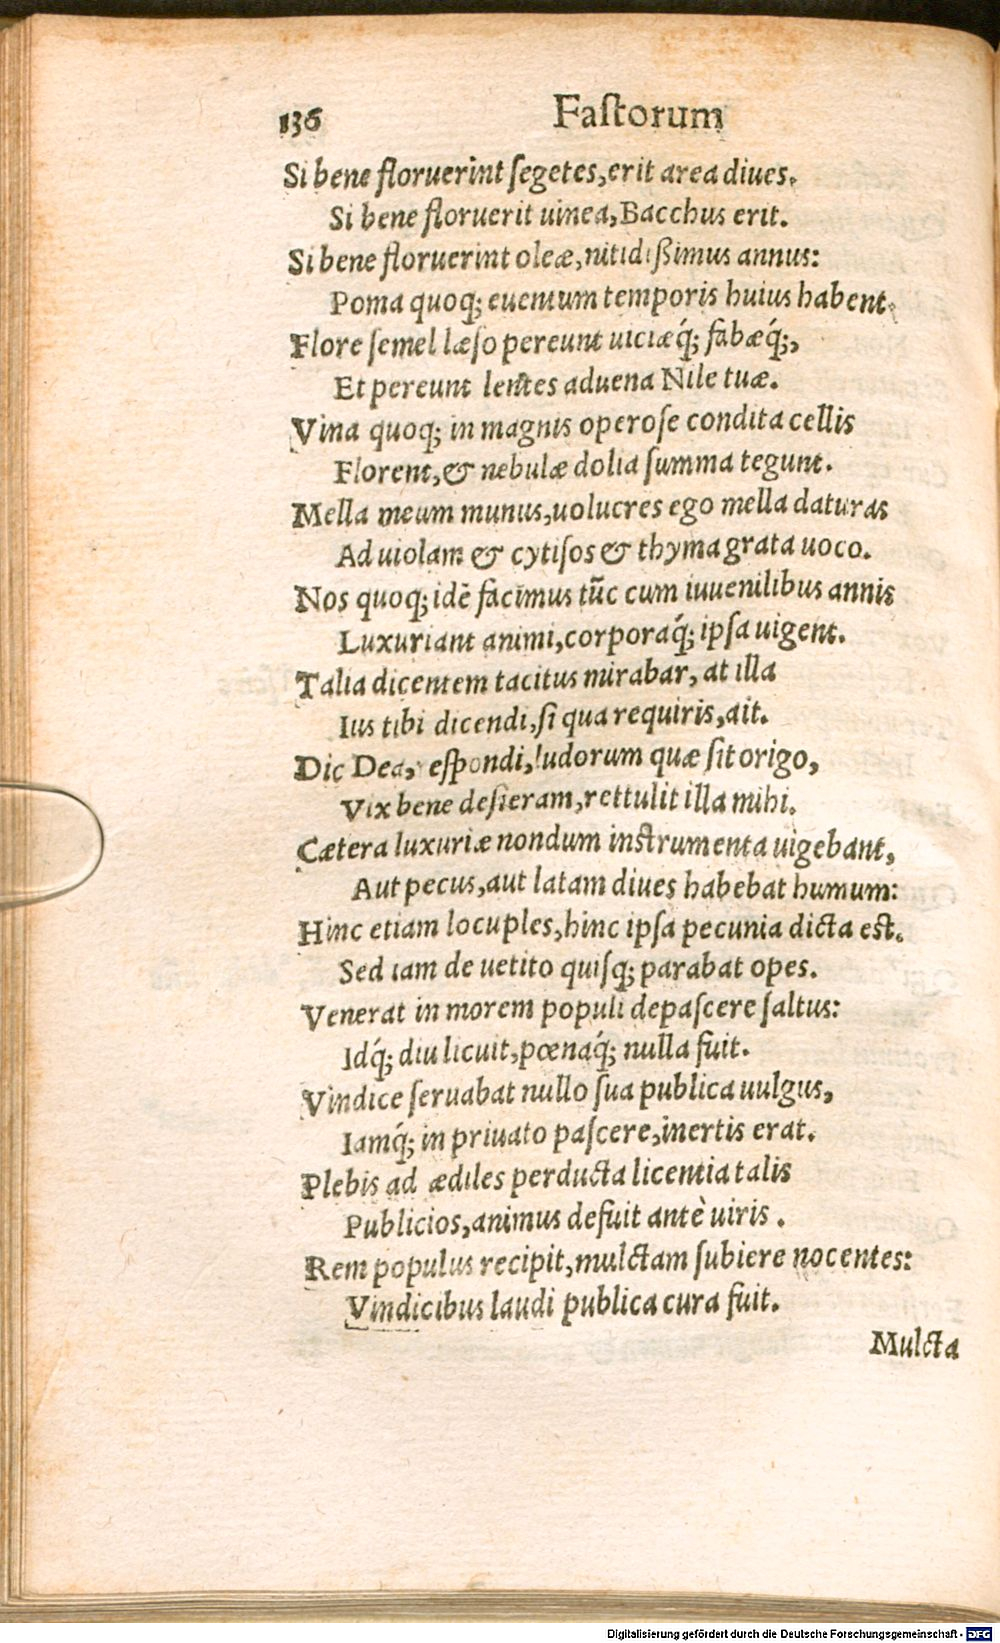 136 Faſtorum
Si bene floruerint ſegetes, erit area diues.
Si bene floruerit uinea, Bacchus erit.
Si bene floruerint oleæ, nitidißimus annus:
Poma quoq; euentum temporis huius habent.
Flore ſemel læſo pereunt uiciæq́; fabæq́;,
Et pereunt lentes aduena Nile tuæ.
Vina quoq; in magnis operoſe condita cellis
Florent, & nebulæ dolia ſumma tegunt.
Mella meum munus, uolucres ego mella daturas
Ad uiolam & cytiſos & thyma grata uoco.
Nos quoq; idē facimus tūc cum iuuenilibus annis
Luxuriant animi, corporaq́; ipſa uigent.
Talia dicentem tacitus mirabar, at illa
Ius tibi dicendi, ſi qua requiris, ait.
Dic Dea, reſpondi, ludorum quæ ſit origo,
Vix bene deſieram, rettulit illa mihi.
Cætera luxuriæ nondum inſtrumenta uigebant,
Aut pecus, aut latam diues habebat humum:
Hinc etiam locuples, hinc ipſa pecunia dicta eſt.
Sed iam de uetito quiſq; parabat opes.
Venerat in morem populi depaſcere ſaltus:
Idq́; diu licuit, pœnaq́; nulla fuit.
Vindice ſeruabat nullo ſua publica uulgus,
Iamq́; in priuato paſcere, inertis erat.
Plebis ad ædiles perducta licentia talis
Publicios, animus defuit antè uiris.
Rem populus recipit, mulctam ſubiere nocentes:
Vindicibus laudi publica cura fuit.
Mulcta
Digitalisierung gefördert durch die Deutsche Forschungsgemeinschaft - DFG